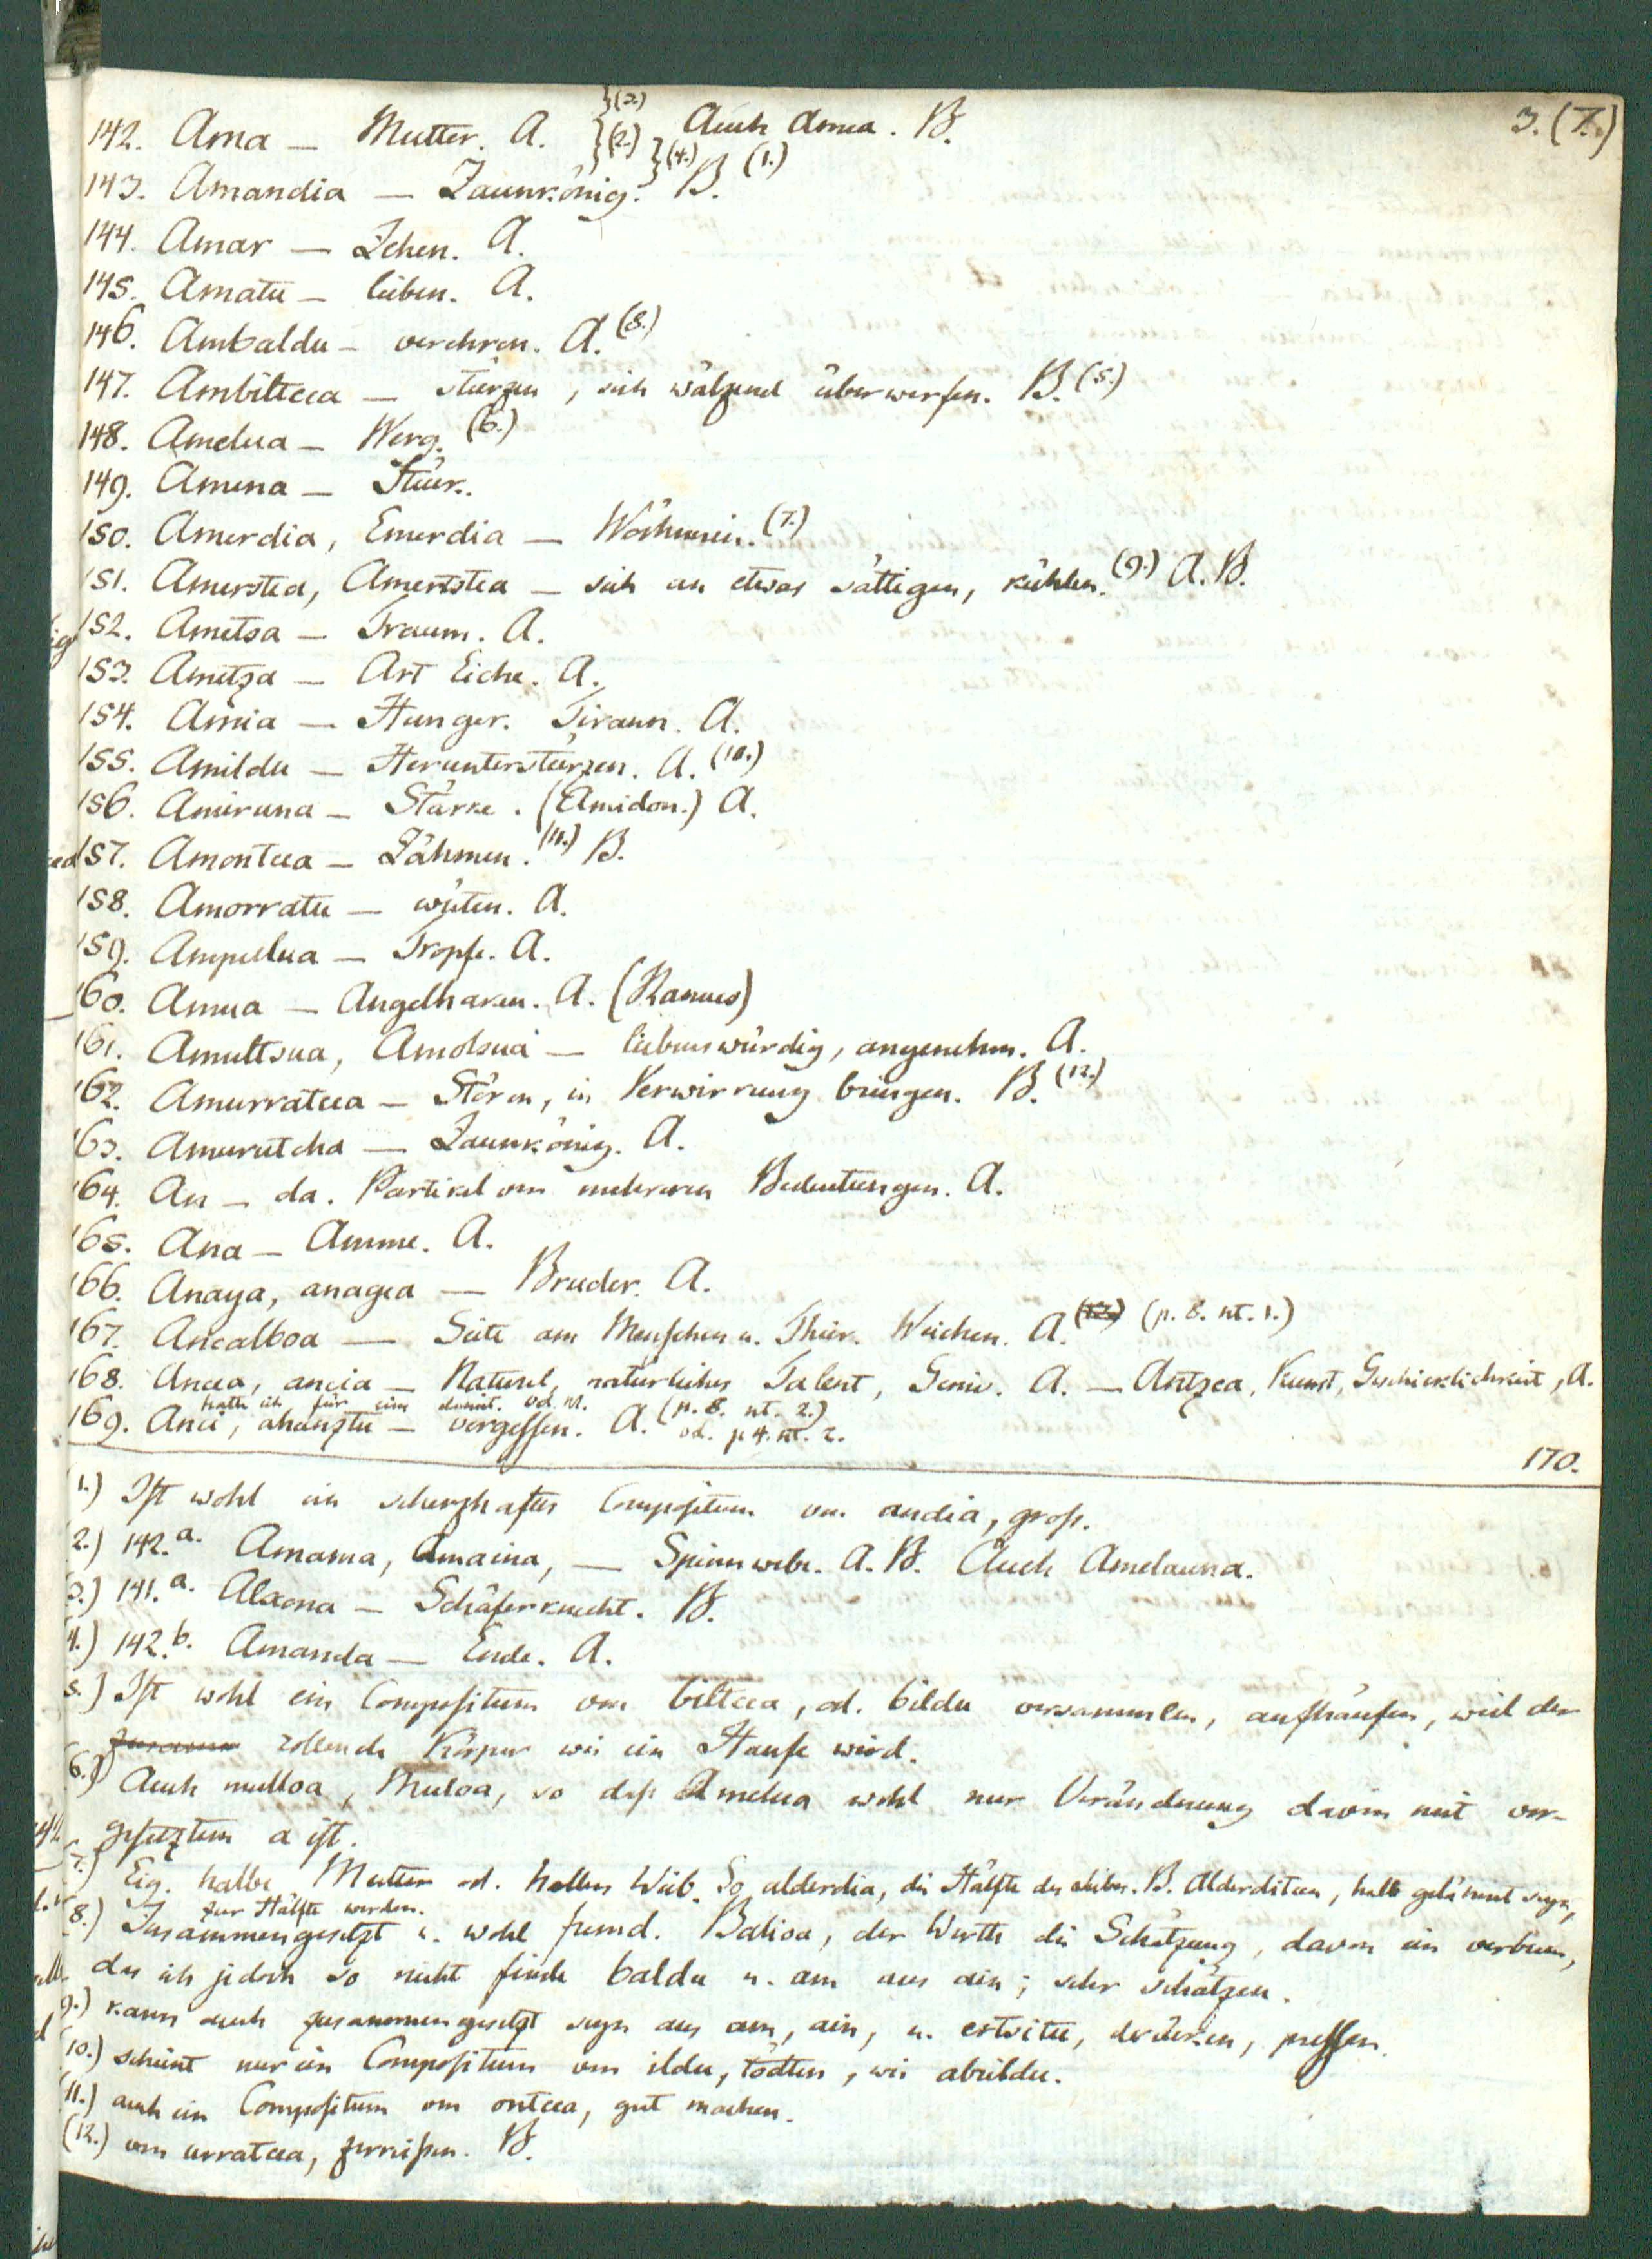 3. (7.)
142. Ama — Mutter. A. }(3.) }(2.) Auch Amea. B.
143. Amandia — Zaunkönig. }(4.) B. (1.)
144. Amar — Zehen. A.
145. Amatu — lieben. A.
146. Ambaldu — verehren. A. (8.)
147. Ambiltcea — stürzen, sich wälzend überwerfen. B. (5.)
148. Amelua — Werg. (6.)
149. Amena —
150. Amerdia, Emerdia — Wöchnerin. (7.)
151. Amerstea, Amertstea — sich an etwas sättigen, kühlen. (9.) A. B.
152. Ametsa — Traum. A.
153. Ametza — Art Eiche. A.
154. Amia — Hunger. Tirann. A.
155. Amildu — Herunterstürzen. A. (10.)
156. Amiruna — Stärke. (Amidon.) A.
157. Amontcea — Zähmen. (11.) B.
158. Amorratu — wüten. A.
159. Ampulua — Tropfe. A.
160. Amua — Angelhaken. A. (Hamus)
161. Amultsua, Amolsua — liebenswürdig, angenehm. A.
162. Amurratcea — Stören, in Verwirrung bringen. B. (12.)
163. Amurutcha — Zaunkönig. A.
164. An — da. Partikel von mehreren Bedeutungen. A.
165. Ana — Amme. A.
166. Anaya, anagea — Bruder. A.
167. Ancalboa — Seite am Menschen u. Thier. Weichen. A. (p. 8. nt. 1.)
168. Ancea, ancia — Naturel, natürliches Talent, Genie. A. — Antzea, Kunst, Geschicklichkeit, A.
169. Anci, ahanztu — vergessen. A. (p. 8. nt. 2.)
od. p 4. nt. 2.
170.
1.) Ist wohl ein scherzhaftes Compositum von andia, gross.
2.) 142.a. Amama, Amaina, — Spinnwebe. A. B. Auch Amelauna.
3.) 141.a. Alxona — Schäferknecht. B.
4.) 142.b. Amanda — Ende. A.
5.) Ist wohl ein Compositum von biltcea, od. bildu versammlen, aufhäufen, weil der
rollende Körper wie ein Haufe wird.
6.) Auch mulloa, Muloa, so dass Amelua wohl nur Veränderung davon mit vor-
gesetztem a ist.
7.) Eig. halbe Mutter od. halbes Weib. So alderdia, die Hälfte des Leibes. B. Alderditcea, halb gelähmt seyn,
zur Hälfte werden.
8.) Zusammengesetzt u. wohl fremd. Balioa, der Werth die Schätzung, davon ein verbum,
das ich jedoch so nicht finde baldu u. am aus ain; sehr schätzen.
9.) kann auch zusammengesetzt seyn aus am, ain, u. ertsitu, drücken, pressen.
10.) scheint nur ein Compositum von ildu, tödten, wie abrildu.
11.) auch ein Compositum von ontcea, gut machen.
(12.) von urratcea, zerreissen. B.